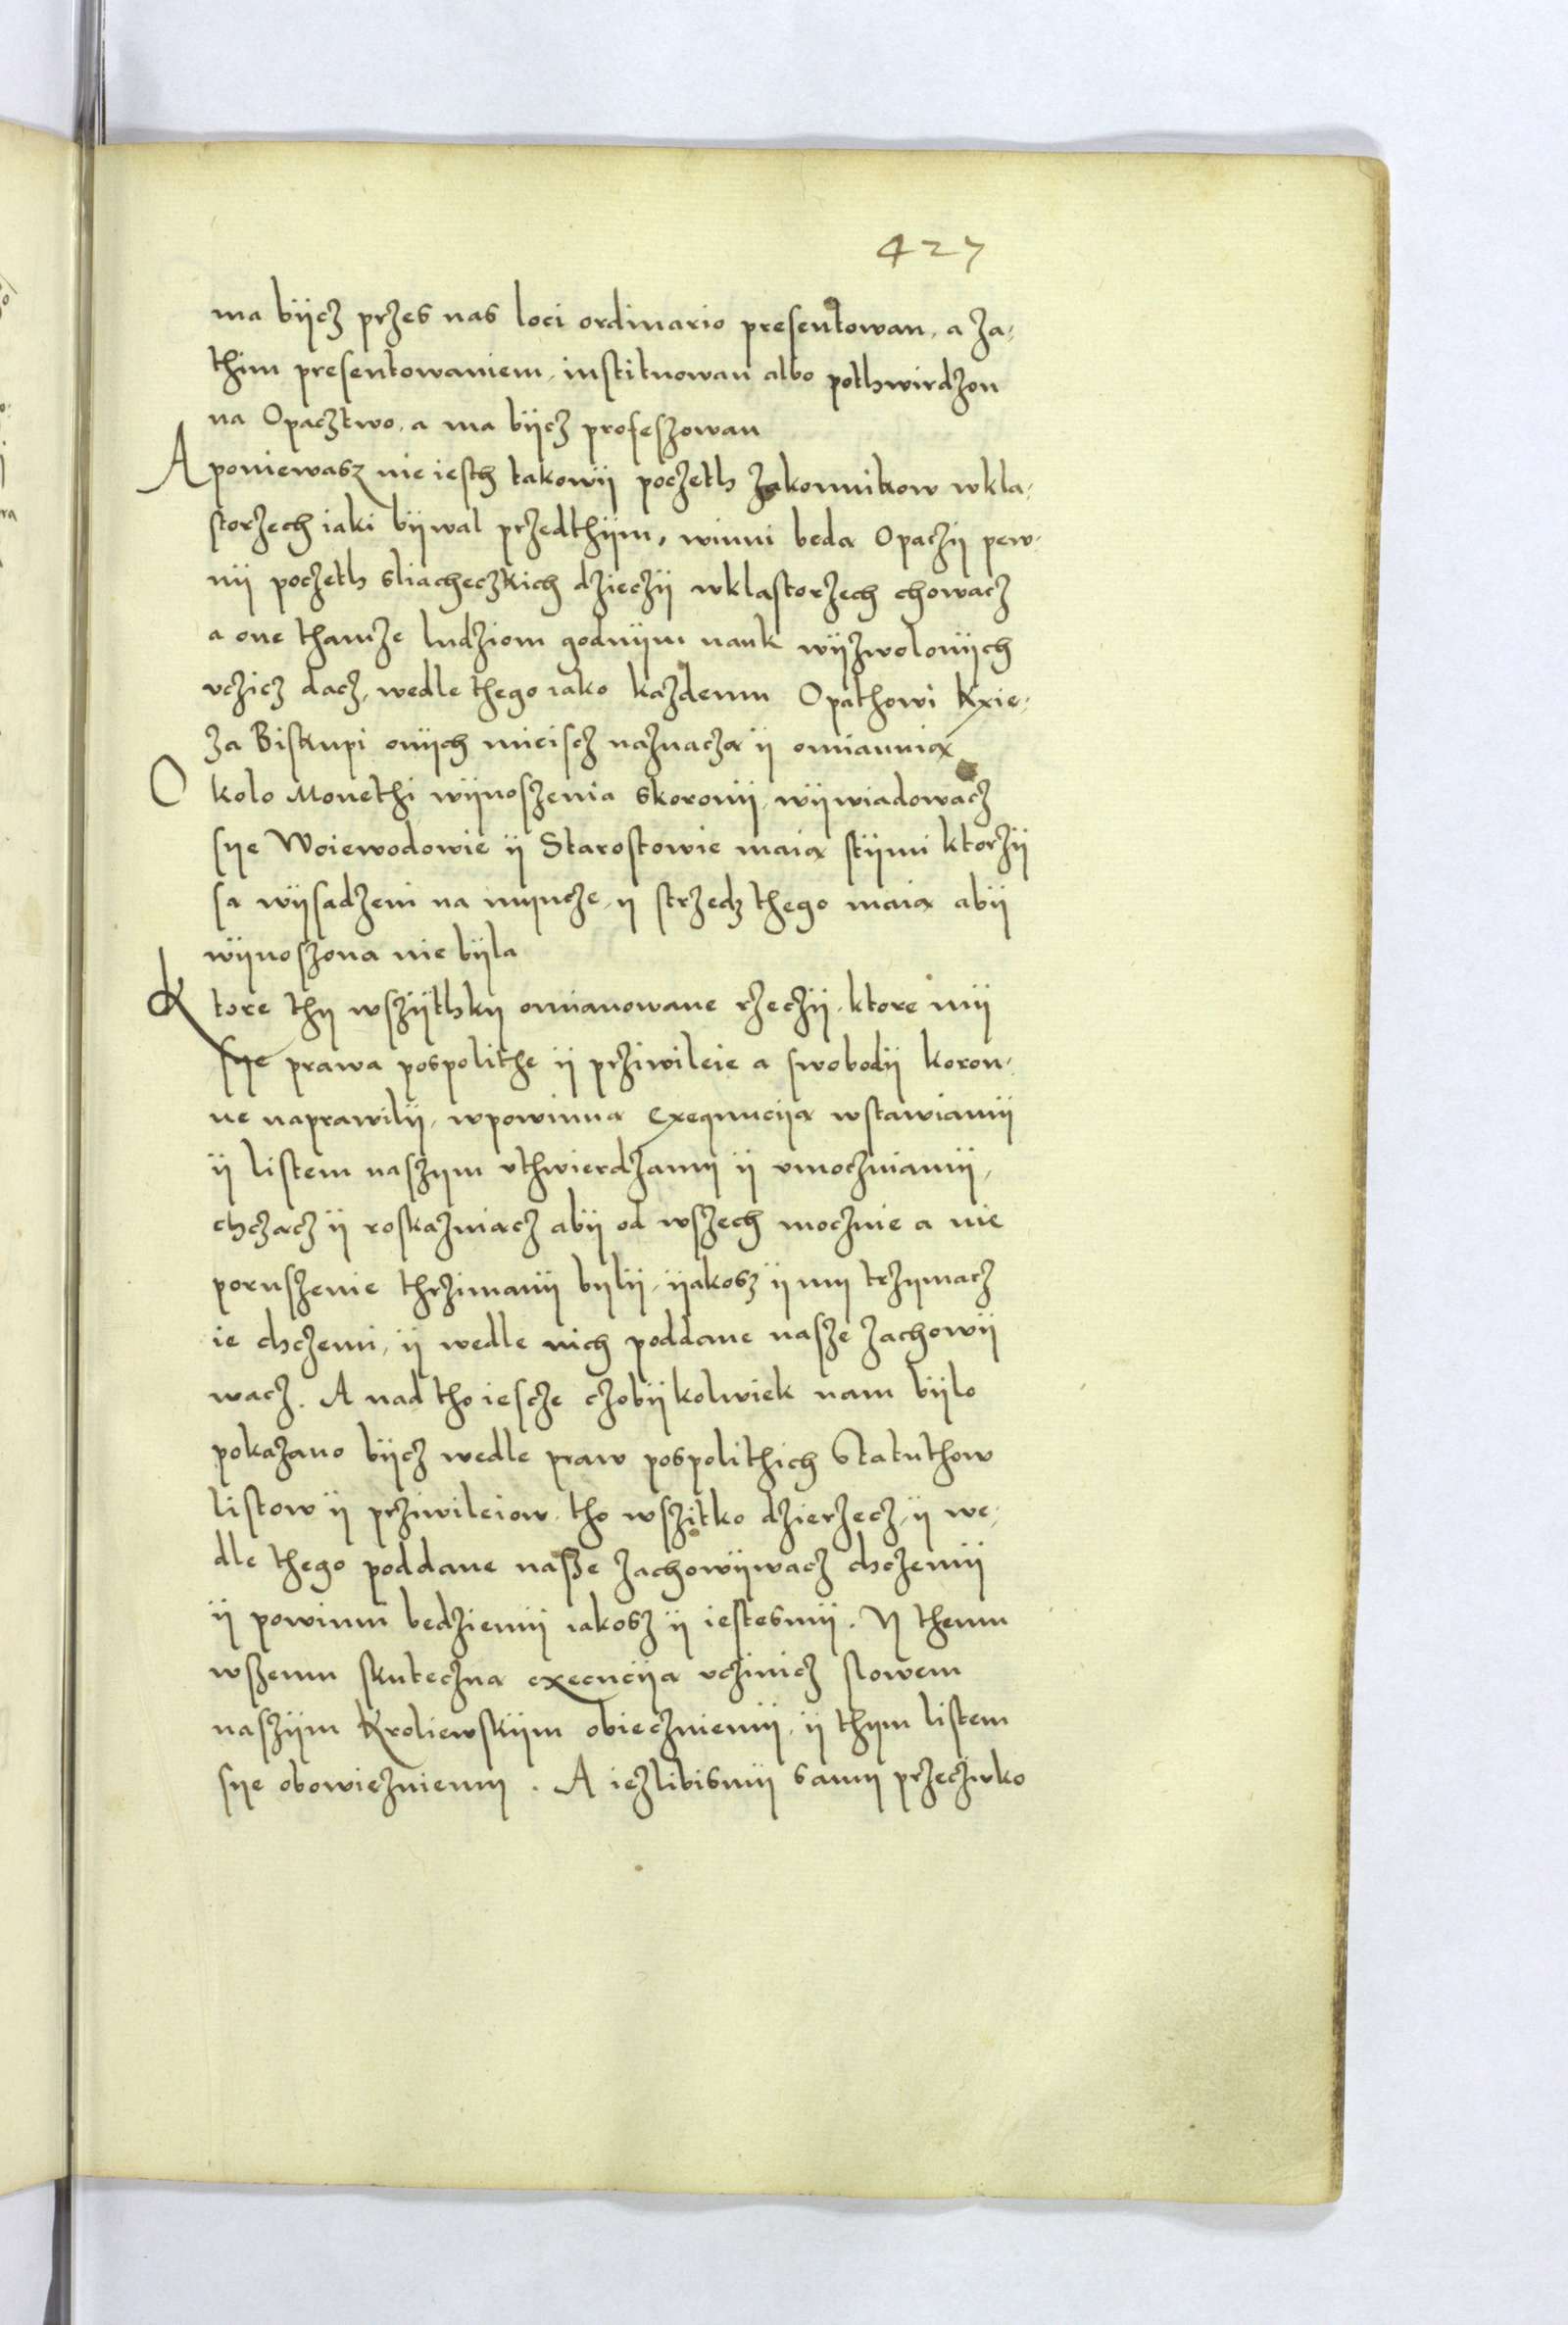 427
ma bÿcz przes nas loci ordinario presentowan, a za-
thim presentowaniem, instituowan albo pothwirdzon
na Opacztwo, a ma bÿcz profeszowan
A poniewasz nie iesth takowÿ poczeth zakonnikow wkla-
storzech iaki bÿwal przedthÿm, winni beda Opaczÿ pew-
nÿ poczeth sliacheczkich dzieczÿ wklastorzech chowacz
a one thamze ludziom godnÿm nauk wÿzwolonÿch
vczicz dacz, wedle thego iako kazdemu Opathowi Kxie-
za Biskupi onÿch mieiscz naznacza ÿ omianuia
Okolo Monethi wÿnoszenia skoronÿ, wÿwiadowacz
sye Woiewodowie ÿ Starostowie maia stÿmi ktorzÿ
sa wÿsadzeni na myncze, y strzedz thego maia abÿ
wÿnoszona nie bÿla
Ktore thy wszÿthky omianowane rzeczÿ, ktore mÿ
sye prawa pospolithe ÿ prziwileie a swobodÿ koron-
ne naprawilÿ, wpowinna exequuciya wstawiamÿ
ÿ listem naszym vthwierdzamy ÿ vmoczniamÿ,
chczacz ÿ roskazuiacz abÿ od wszech mocznie a nie
poruszenie thrzimanÿ bylÿ, ÿakosz ÿ my trzymacz
ie chczemi, ÿ wedle nich poddane nasze zachowÿ
wacz. A nad tho iescze czobÿkolwiek nam bÿlo
pokazano bÿcz wedle praw pospolithich Statuthow
listow ÿ prziwileiow, tho wszitko dzierzecz, ÿ we-
dle thego poddane nasze zachowÿwacz chczemÿ
ÿ powinni bedziemÿ iakosz ÿ iestesmÿ. Y themu
wszemu skuteczna execuciya vczinicz slowem
naszÿm Kroliewskÿm obieczuiemÿ, ÿ thym listem
sye obowiezuiemy. A iezlibismÿ samy przeczwko